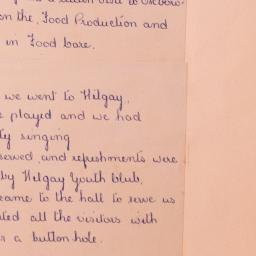 on the, Food Production and
in Food care.
we went to Hilgay.
played and we had
ty singing
served, and refreshments were
by Hilgay Youth Club.
came to the hall to serve us
ted all the visitors with
a button-hole.